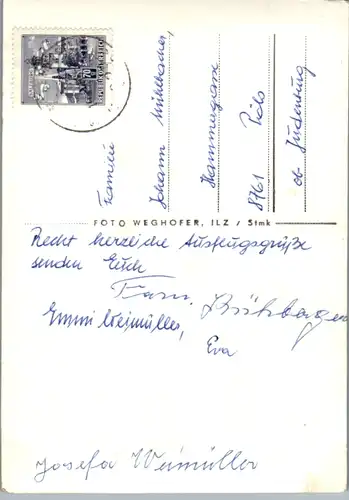 Familie
Johann Mühlbacher,
Hammergasse
8761 Pöls
ob Judenburg
FOTO WEGHOFER, ILZ / Stmk
Recht herzliche Ausflugsgrüße
senden Euch
Fam.
Emmi Weimüller,
Eva
Josefa Weimüller